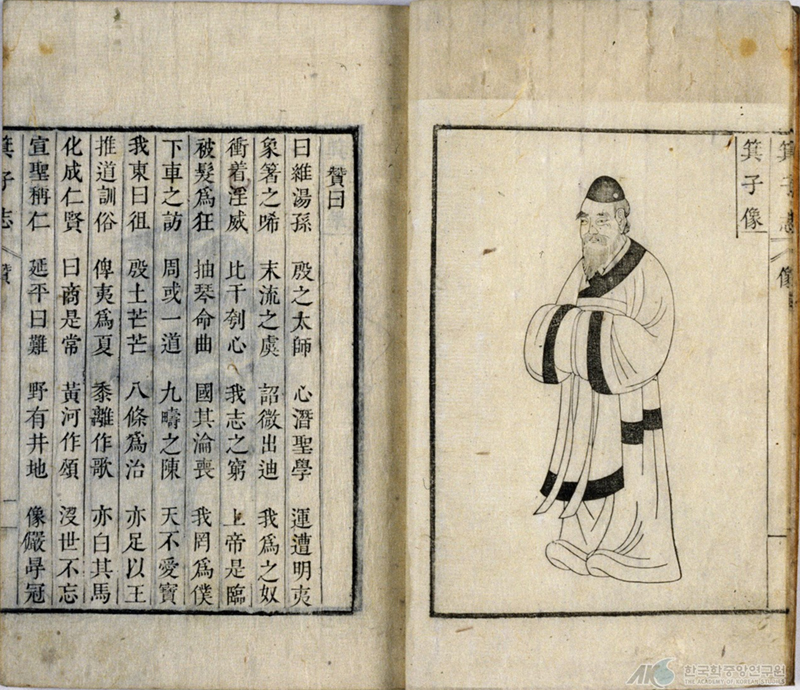 箕子志 像
箕子像
贊曰
曰維湯孫 殷之太師 心潛聖學 運遭明夷
象箸之唏 末流之虞 詔微出迪 我爲之奴
衝着淫威 比干刳心 我志之窮 上帝是臨
被髮爲狂 抽琴命曲 國其淪喪 我罔爲僕
下車之訪 周或一道 九疇之陳 天不愛寶
我東曰徂 殷土芒芒 八條爲治 亦足以王
推道訓俗 俾夷爲夏 黍離作歌 亦白其馬
化成仁賢 曰商是常 黃河作頌 沒世不忘
宣聖稱仁 延平曰難 野有井地 像儼冔冠
箕子志 贊
한국학중앙연구원
THE ACADEMY OF KOREAN STUDIES